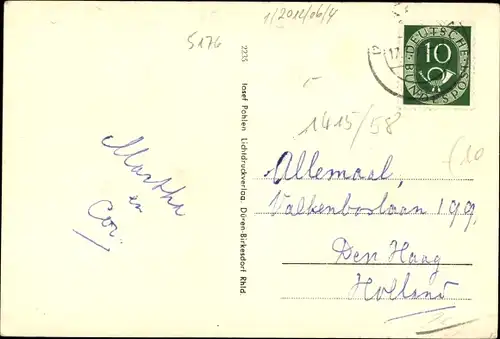 5176
1/2012/06/4
2235 Josef Pohlen Lichtdruckverlag, Düren-Birkesdorf Rhld.
DEUTSCHE BUNDESPOST
10
17.
1415/58
10
Martha
en
Cor.
Allemaal,
Valkenboslaan 199,
Den Haag
Holland